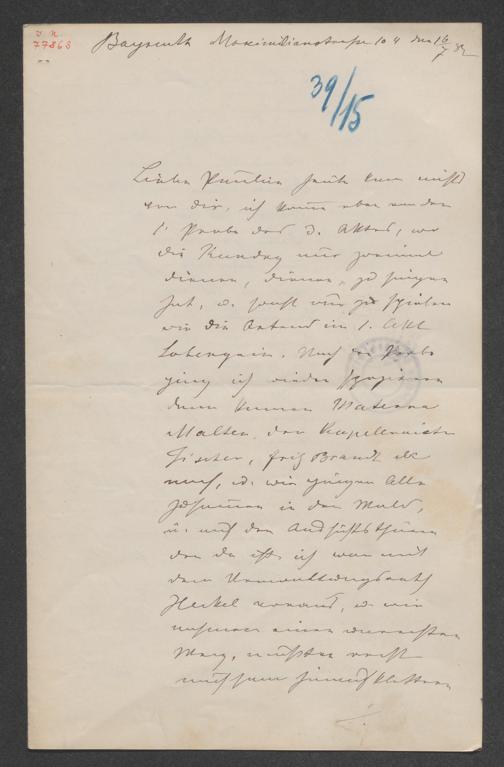 V. N.
77863
Bayreuth Maximilianstrasse 10 den 16/7 82
39/15
Liebe Pauline heute kam nichts
von dir, ich komme eben von der
1' Probe des 3. Aktes, wo
die Kundry nur zweimal
dienen, dienen, zu singen
hat, u. sonst nur zu spielen
wie die Ortrud im 1. Akt
Lohengrin. Nach der Probe
ging ich wieder spazieren
dann kamen Materna
Malten, der Kapellmeister
Fischer, Fritz Brandt etc
nach, u. wir gingen Alle
zusammen in den Wald,
u. auf den Aussichtsthurm
der da ist. ich war mit
dem Verwaltungsrath
Heckel voraus, u. wir
nahmen einen
Weg, mußten recht
mühsam hinaufklettern